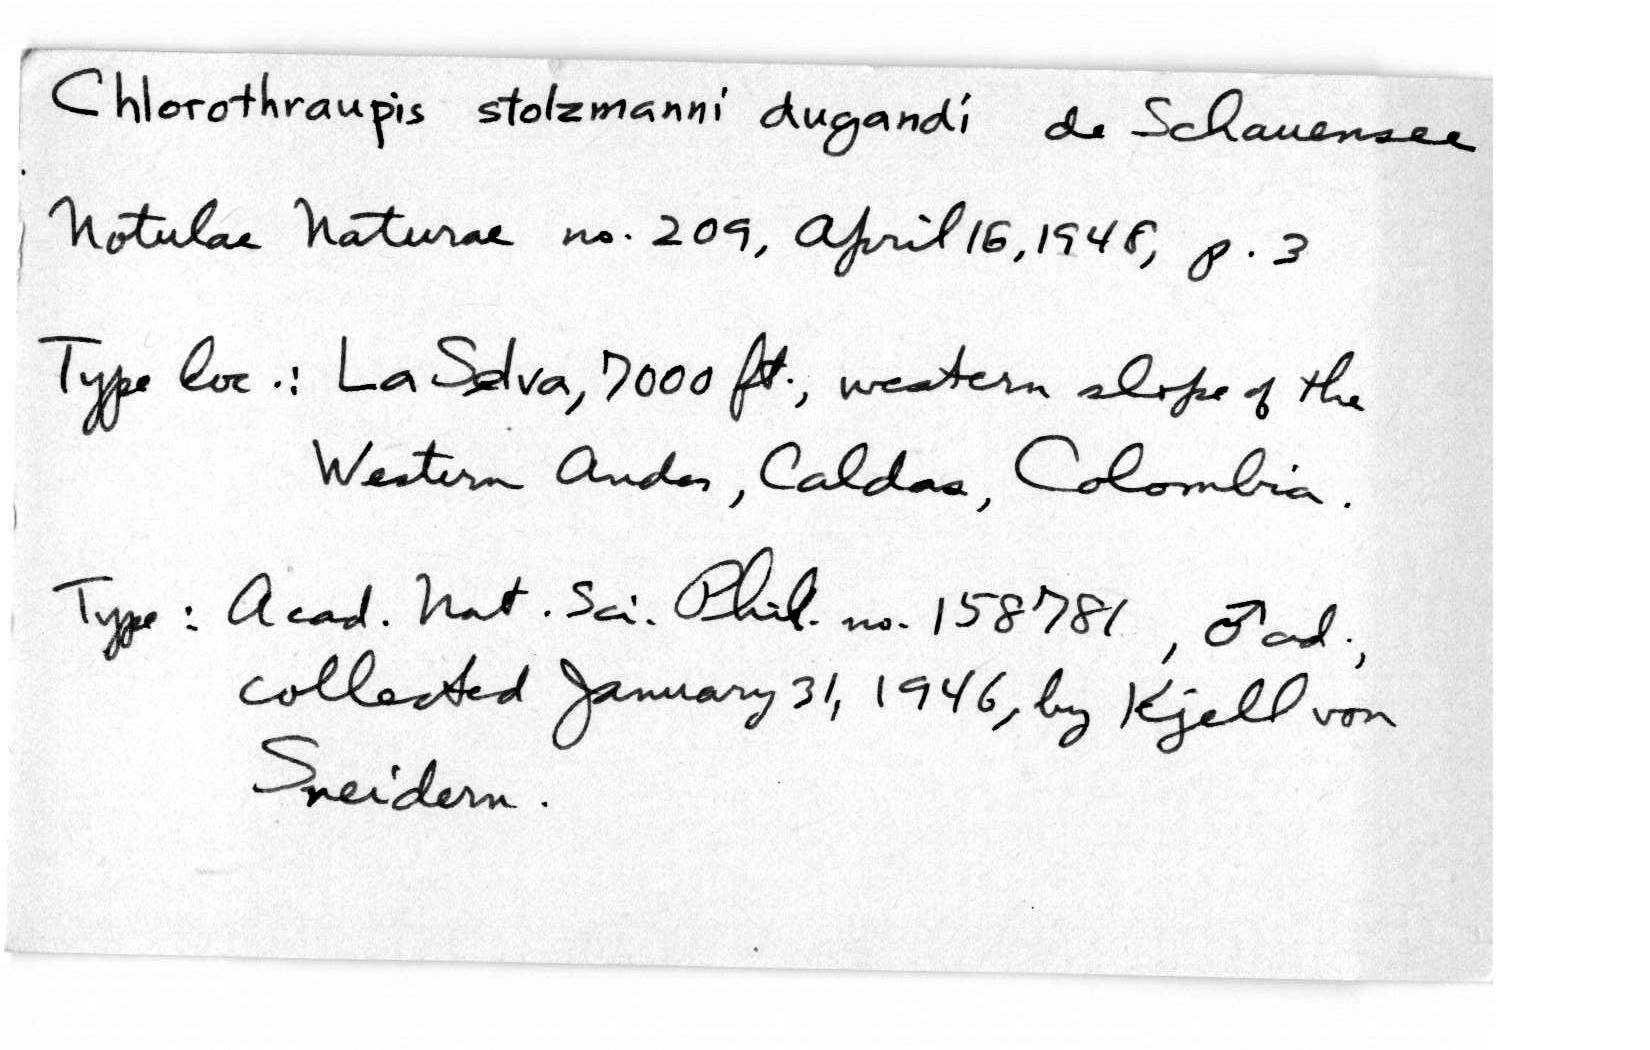 Chlorothraupis stolzmanni dugandi de Schauensee
Notulae Naturae no. 209, April 15, 1948, p. 3
Type loc.: La Selva, 7000 ft., western slope of the
Western Andes, Caldas, Colombia.
Type: Acad. Nat. Sci. Phil. no. 158781, ♂ ad.,
collected January 31, 1946, by Kjell von
Sneidern.